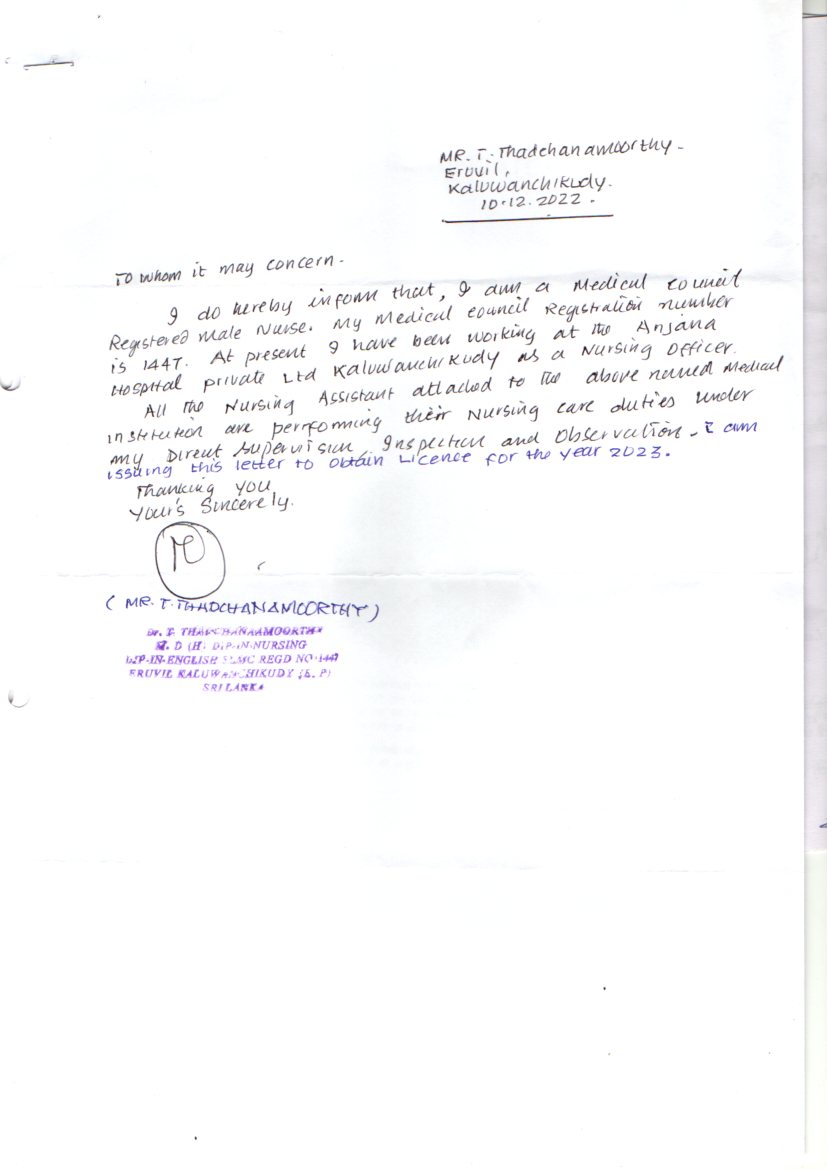 MR. T. Thadchanamoorthy -
Eruvil,
Kaluwanchikudy.
10.12.2022.
To whom it may concern.
I do hereby inform that, I am a Medical council
Registered Male Nurse. My Medical council Registration number
is 1447. At present I have been working at the Anjana
Hospital private Ltd Kaluwanchikudy as a Nursing Officer.
All the Nursing Assistant attached to the above named Medical
institution are performing their Nursing care duties under
my Direct Supervision, Inspection and Observation. I am
issuing this letter to obtain Licence for the year 2023.
Thanking you
Your's Sincerely.
( MR. T. THADCHANAMOORTHY )
Dr. T. THADCHANAAMOORTHY
M. D (H) DIP-IN-NURSING
DIP-IN-ENGLISH SLMC REGD NO-1447
ERUVIL KALUWANCHIKUDY (E. P)
SRI LANKA